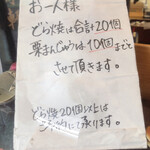 お一人様
どら焼は合計20個
栗まんじゅうは10個までと
させて頂きます。
どら焼20個以上は
ご予約にて承ります。